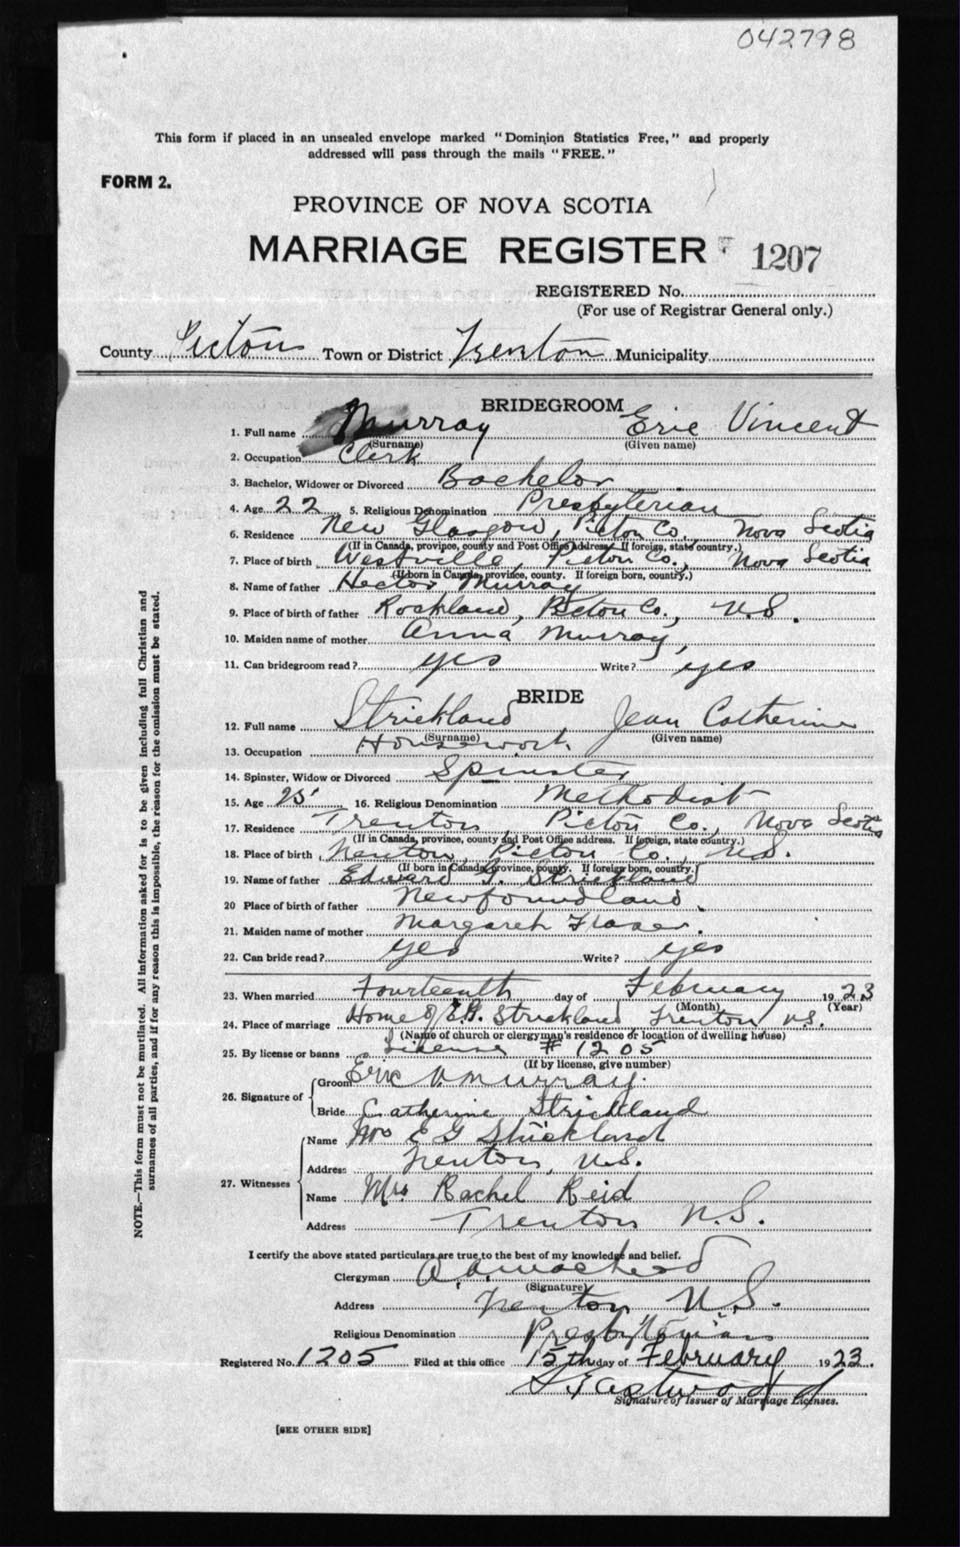 042798
This form if placed in an unsealed envelope marked "Dominion Statistics Free," and properly
addressed will pass through the mails "FREE."
FORM 2.
PROVINCE OF NOVA SCOTIA
MARRIAGE REGISTER 1207
REGISTERED No.
(For use of Registrar General only.)
County Pictou Town or District Trenton Municipality
BRIDEGROOM
1. Full name Murray Eric Vincent
(Surname) (Given name)
2. Occupation Clerk
3. Bachelor, Widower or Divorced Bachelor
4. Age 22 5. Religious Denomination Presbyterian
6. Residence New Glasgow, Picton Co., Nova Scotia
(If in Canada, province, county and Post Office address. If foreign, state country.)
7. Place of birth Westville, Picton Co., Nova Scotia
(If born in Canada, province, county. If foreign born, country.)
8. Name of father Hector Murray
9. Place of birth of father Rockland, Picton Co., N.S.
10. Maiden name of mother Anna Murray,
11. Can bridegroom read? yes Write? yes
BRIDE
12. Full name Strickland Jean Catherine
(Surname) (Given name)
13. Occupation Housework
14. Spinster, Widow or Divorced Spinster
15. Age 25 16. Religious Denomination Methodist
17. Residence Trenton, Picton Co., Nova Scotia
(If in Canada, province, county and Post Office address. If foreign, state country.)
18. Place of birth Trenton, Picton Co., N.S.
(If born in Canada, province, county. If foreign born, country.)
19. Name of father Edward G. Strickland
20 Place of birth of father Newfoundland.
21. Maiden name of mother Margaret Fraser.
22. Can bride read? yes Write? yes
23. When married Fourteenth day of February 1923
(Month) (Year)
24. Place of marriage Home of E.G. Strickland Trenton N.S.
(Name of church or clergyman's residence or location of dwelling house)
25. By license or banns License # 1205
(If by license, give number)
26. Signature of
Groom Eric V. Murray.
Bride Catherine Strickland
27. Witnesses
Name Mrs E G Strickland
Address Trenton, N.S.
Name Mrs Rachel Reid
Address Trenton N.S.
I certify the above stated particulars are true to the best of my knowledge and belief.
Clergyman
(Signature)
Address Trenton N.S.
Religious Denomination Presbyterian
Registered No. 1205 Filed at this office 15th day of February 1923.
Eastwood
Signature of Issuer of Marriage Licenses.
[SEE OTHER SIDE]
NOTE.—This form must not be mutilated. All information asked for is to be given including full Christian and
surnames of all parties, and if for any reason this is impossible, the reason for the omission must be stated.